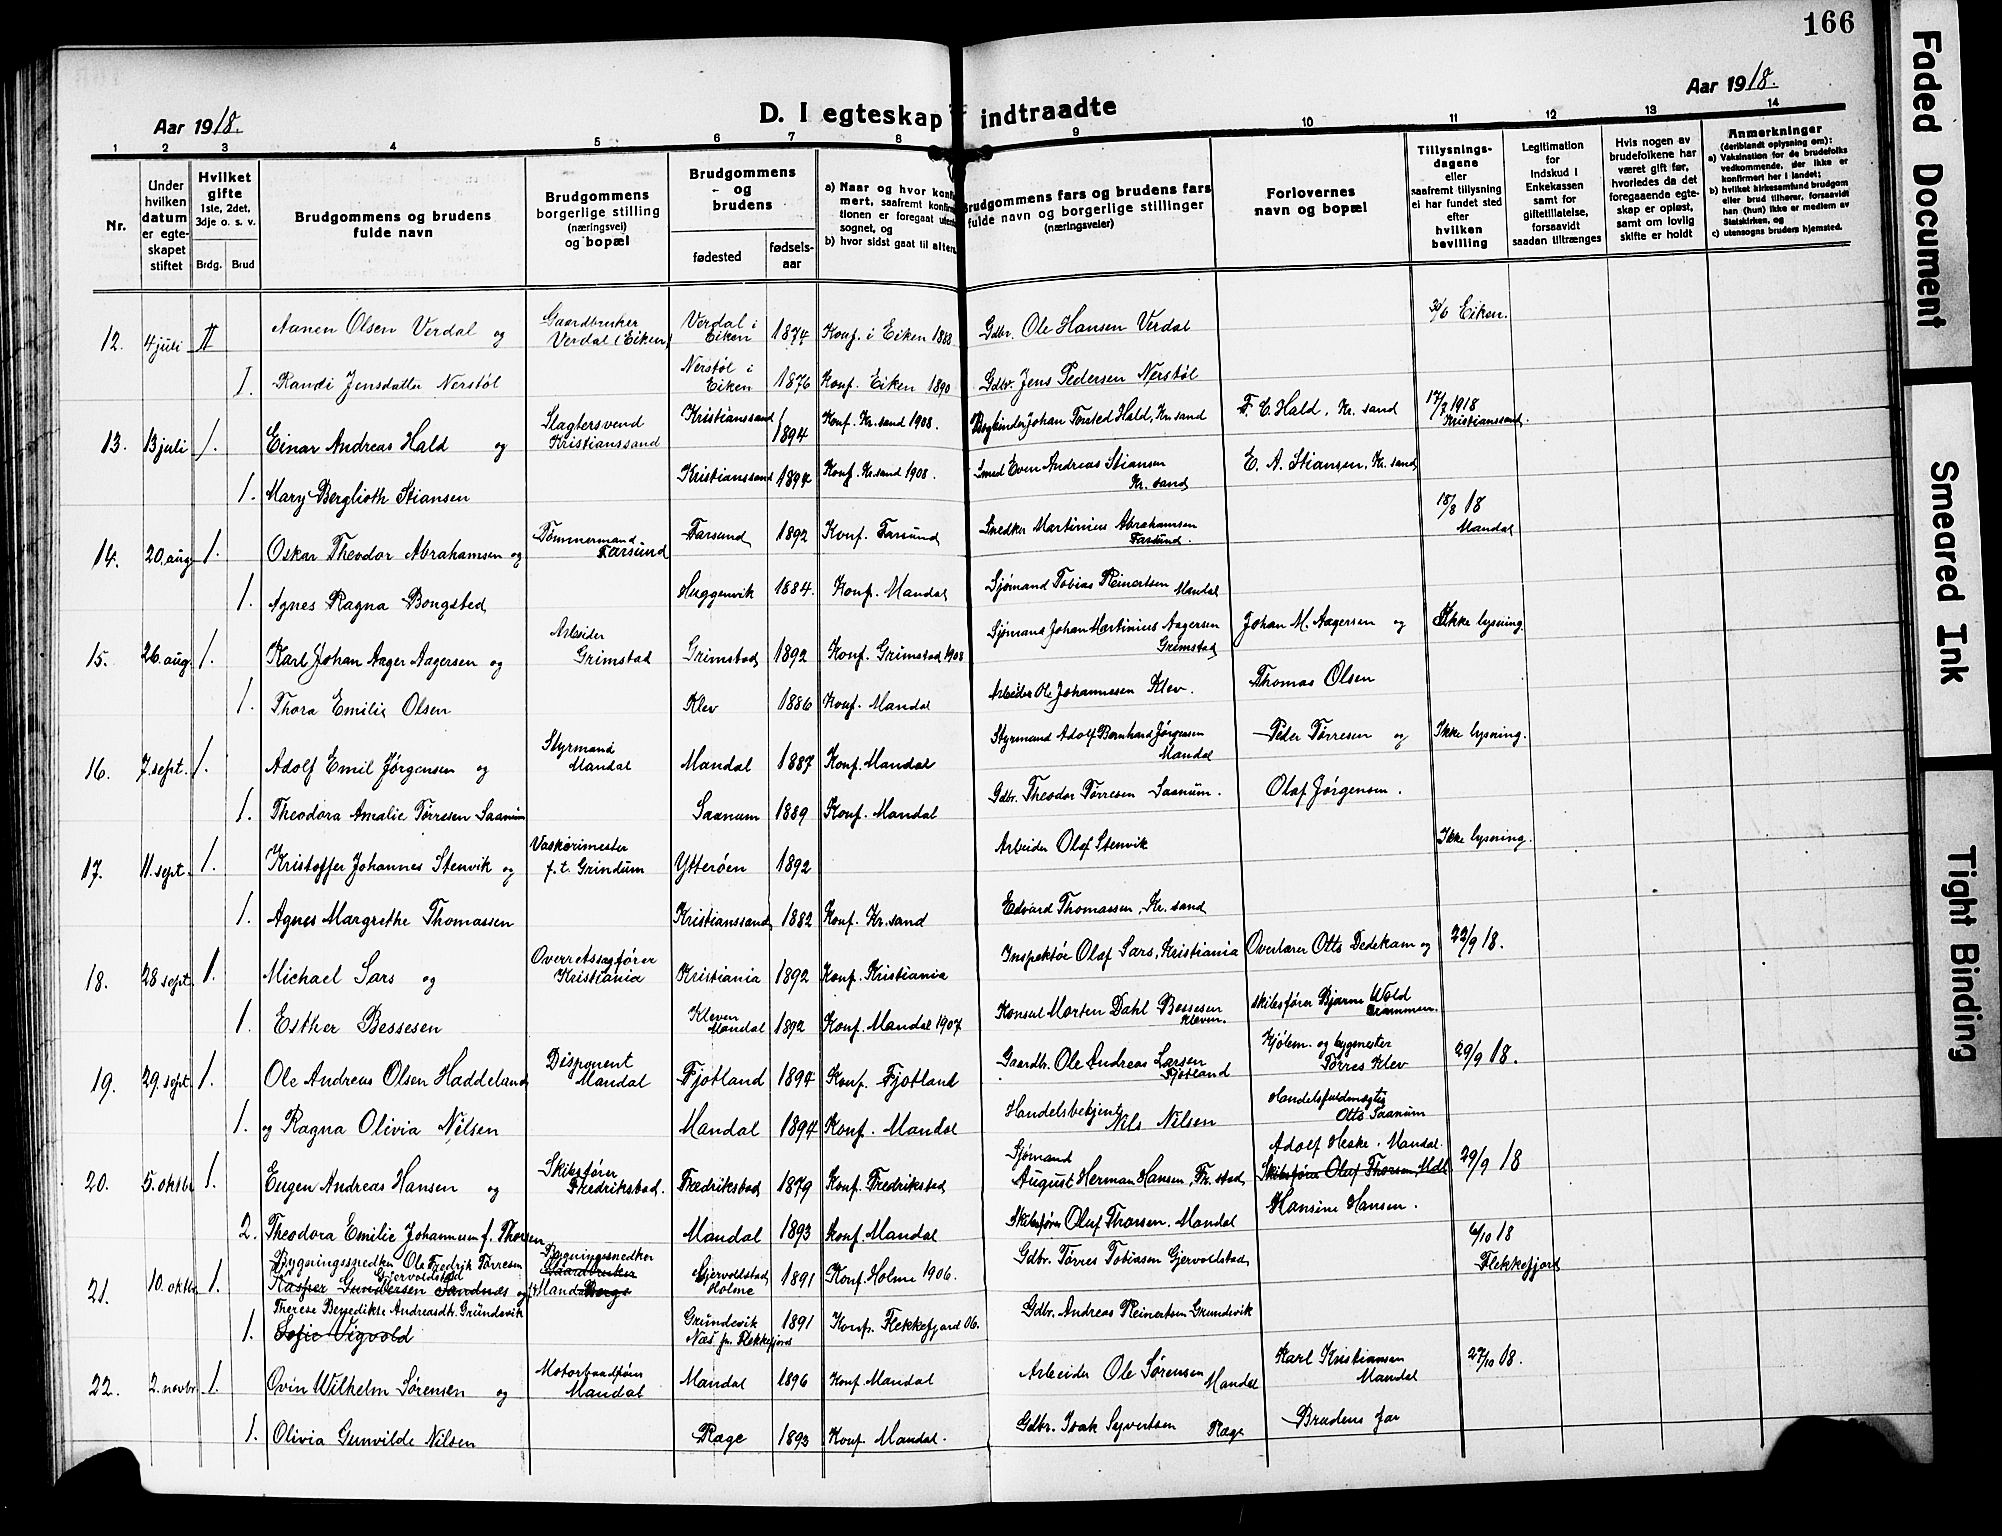 166
Aar 1918.
D. I egteskap indtraadte
Aar 1918.
1 2 3 4 5 6 7 8 9 10 11 12 13 14
Nr.
Under hvilken datum er egteskapet stiftet
Hvilket gifte
1ste, 2det, 3dje o. s. v.
Brdg. Brud
Brudgommens og brudens fulde navn
Brudgommens borgerlige stilling (næringsvei) og bopæl
Brudgommens og brudens
fødested
fødselsaar
a) Naar og hvor konfirmert, saafremt konfirmationen er foregaat utensognet, og
b) hvor sidst gaat til alters
Brudgommens fars og brudens fars fulde navn og borgerlige stillinger (næringsveier)
Forlovernes navn og bopæl
Tillysningsdagene eller saafremt tillysning ei har fundet sted efter hvilken bevilling
Legitimation for indskud i Enkekassen samt for giftetilladelse, forsaavidt saadan tiltrænges
Hvis nogen av brudefolkene har været gift før, hvorledes da det foregaaende egteskap er opløst, samt om lovlig skifte er holdt
Anmerkninger
(deriblandt oplysning om):
a) Vaksination for de brudefolks vedkommende, der ikke er konfirmert her i landet;
b) hvilket kirkesamfund brudgom eller brud tilhører, forsaavidt han (hun) ikke er medlem av Statskirken, og
c) utensogns bruders hjemsted.
12. 4 juli II Aanen Olsen Verdal og Gaardbruker Verdal (Eiken) Verdal i Eiken 1874 Konf. i Eiken 1888 Gdbr. Ole Hansen Verdal 30/6 Eiken.
I. Randi Jensdatter Nerstøl Nerstøl i Eiken 1876 Konf. Eiken 1890 Gdbr. Jens Pedersen Nerstøl
13. 13 juli 1. Einar Andreas Hald og Slagtersvend Kristianssand Kristianssand 1894 Konf. Kr.sand 1908. Bogbinder Johan Hald, Kr.sand F. C. Hald, Kr. sand 17/7 1918 Kristianssand.
1. Mary Berglioth Stiansen Kristianssand 1894 Konf. Kr.sand 1908. Smed Even Andreas Stiansen Kr. sand E. A. Stiansen, Kr. sand
14. 20. aug 1. Oskar Theodor Abrahamsen og Tømmermand Farsund Farsund 1892 Konf. Farsund Snedker Martinius Abrahamsen Farsund. 18/8 18 Mandal
1. Agnes Ragna Bongsted Huggenvik 1884. Konf. Mandal Sjømand Tobias Reinertsen Mandal
15. 26. aug. 1. Karl Johan Aager Aagersen og Arbeider Grimstad Grimstad 1892 Konf. Grimstad 1908 Sjømand Johan Martinius Aagersen Grimstad Johan M. Aagersen og Ikke lysning
1. Thora Emilie Olsen Klev 1886 Konf. Mandal Arbeider Ole Johannesen Klev. Thomas Olsen
16. 7. sept. 1. Adolf Emil Jørgensen og Styrmand Mandal Mandal 1887 Konf. Mandal Styrmand Adolf Bernhard Jørgensen Mandal Peder Tørresen og Ikke lysning.
1. Theodora Amalie Tørresen Saanum Saanum 1889 Konf. Mandal Gdbr. Theodor Tørresen Saanum. Olaf Jørgensen.
17. 11. sept. 1. Kristoffer Johannes Stenvik og Vaskerimester f. t. Grindum Ytterøen 1892 Arbeider Olaf Stenvik Ikke lysning.
1. Agnes Margrethe Thomassen Kristianssand 1882 Konf. Kr.sand Edvard Thomassen, Kr. sand
18. 28 sept. 1. Michael Sars og Overretssagfører Kristiania Kristiania 1892 Konf. Kristiania Inspektør Olaf Sars, Kristiania Overlærer Otto Dedekam og 22/9 18.
1. Esther Bessesen Kleven Mandal 1892 Konf. Mandal 1907 Konsul Morten Dahl Bessesen Kleven. Skibsfører Bjarne Wold Drammen.
19. 29. sept. 1. Ole Andreas Olsen Haddeland Disponent Mandal Fjotland 1894 Konf. Fjotland Gaardbr. Ole Andreas Larsen Fjotland Kjølem. og bygmester Tørres Klev 29/9 18.
1. og Ragna Olivia Nilsen Mandal 1894 Konf. Mandal Handelsbetjent Nils Nilsen Handelsfuldmægtig Otto Saanum
20. 5. oktbr 1. Eugen Andreas Hansen og Skibsfører Fredriksbad. Fredriksbad 1879 Konf. Fredriksbad Sjømand August Herman Hansen, Fr. stad Adolf Heske. Mandal. Skibsfører Oluf Thorsen, Mdl 29/9 18
2. Theodora Emilie Johannesen f. Thorsen Mandal 1893 Konf. Mandal Skibsfører Oluf Thorsen. Mandal Hansine Hansen.
21. 10. oktbr 1. Bygningssnedker Ole Fredrik Tørresen Gjervoldstad Kasper Gundersen Sandnæs og Bygningssnedker Gaardbruker Mandal Berge Gjervoldstad Holme 1891 Konf. Holme 1906. Gdbr. Tørres Tobiassen Gjervoldstad 6/10 18 Flekkefjord
1. Therese Benedikte Andreasdtr. Grundevik Sofie Vigvold Grundevik Næs pr. Flekkefjord 1891 Konf. Flekkefjord 06. Gdbr. Andreas Reinertsen Grundevik
22. 2. novbr 1. Øvin Wilhelm Sørensen og Motorbaadfører Mandal Mandal 1896 Konf. Mandal Arbeider Ole Sørensen Mandal Karl Kristiansen Mandal 27/10 18.
1. Olivia Gunvilde Nilsen Ræge 1893 Konf. Mandal. Gdbr. Isak Syvertsen Ræge Brudens far
Faded Document
Smeared Ink
Tight Binding